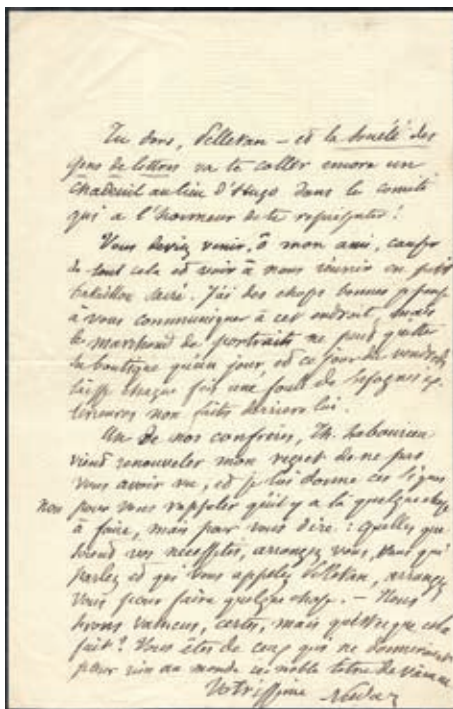 Tu dors, Pelletan – et la Société des
gens de lettres va te coller encore un
Chadeuil au lieu d'Hugo dans le comité
qui a l'honneur de te représenter !
Vous devriez venir, ô mon ami, causer
de tout cela et voir à nous réunir en petit
bataillon sacré. J'ai des choses bonnes je pense
à vous communiquer à cet endroit, mais
le marchand de portraits ne peut quitter
sa boutique qu'un jour, et ce jour de vendredi
laisse chaque fois une foule de besognes
derrière lui.
Un de nos confrères, Th. Labourieu
vient renouveler mon regret de ne pas
vous avoir vu, et je lui donne ces lignes
non pour vous rappeler qu'il y a là quelque chose
à faire, mais pour vous dire : quelles que
soient vos nécessités, arrangez vous, vous qui
parlez et qui vous appelez Pelletan, arrangez
vous pour faire quelque chose. – Nous
serons vaincus, certes, mais qu'est-ce que cela
fait ? Vous êtes de ceux qui ne donneraient
pour rien au monde ce noble titre de vaincu.
Votrissime Nadar